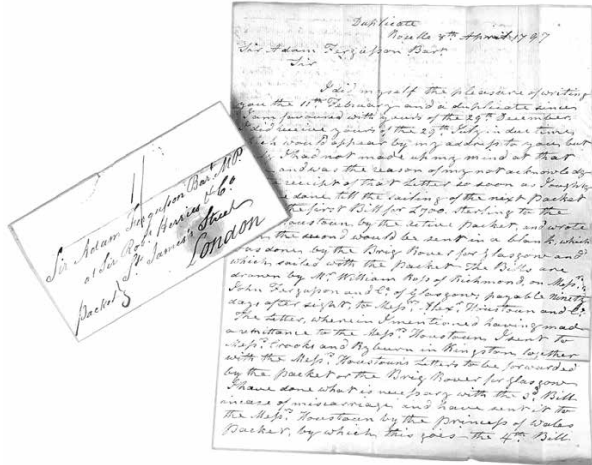 Duplicate
Rozelle 8th April 1797
Sir Adam Fergusson Bart
Sir
I did myself the pleasure of writing
you the 11th February and a duplicate since
I am favoured with yours of the 29th December.
I did receive yours of the 29th July in due time,
which would appear by my address to you, but
I had not made up my mind at that
and was the reason of my not acknowledg
receipt of that Letter so soon as I ought to
done till the sailing of the next Packet
the first Bill for £700. Sterling to the
Houstoun by the active Packet, and wrote
the second would be sent in a blank, which
was done by the Brig Rover for Glasgow and
which sailed with the Packet. The Bills are
drawn by Mr. William Ross of Richmond, on Messrs.
John Fergusson and Co. of Glasgow, payable ninety
days after sight, to Messrs. Alexr. Houstoun and Co.
The Letter, wherein I mentioned having made
a remittance to the Messrs. Houstoun, I sent to
Messrs. Crooks and Ryburn in Kingston together
with the Messrs. Houstoun's Letters to be forwarded
by the packet or the Brig Rover for Glasgow
I have done what is necessary with the 3d. Bill
incase of miscarriage, and have sent it to
the Messrs. Houstoun by the Princess of Wales
Packet, by which this goes the 4th. Bill
Sir Adam Fergusson Bart. M.P.
at Sir Robt. Herries & Co.
St. James's Street
London
Packet